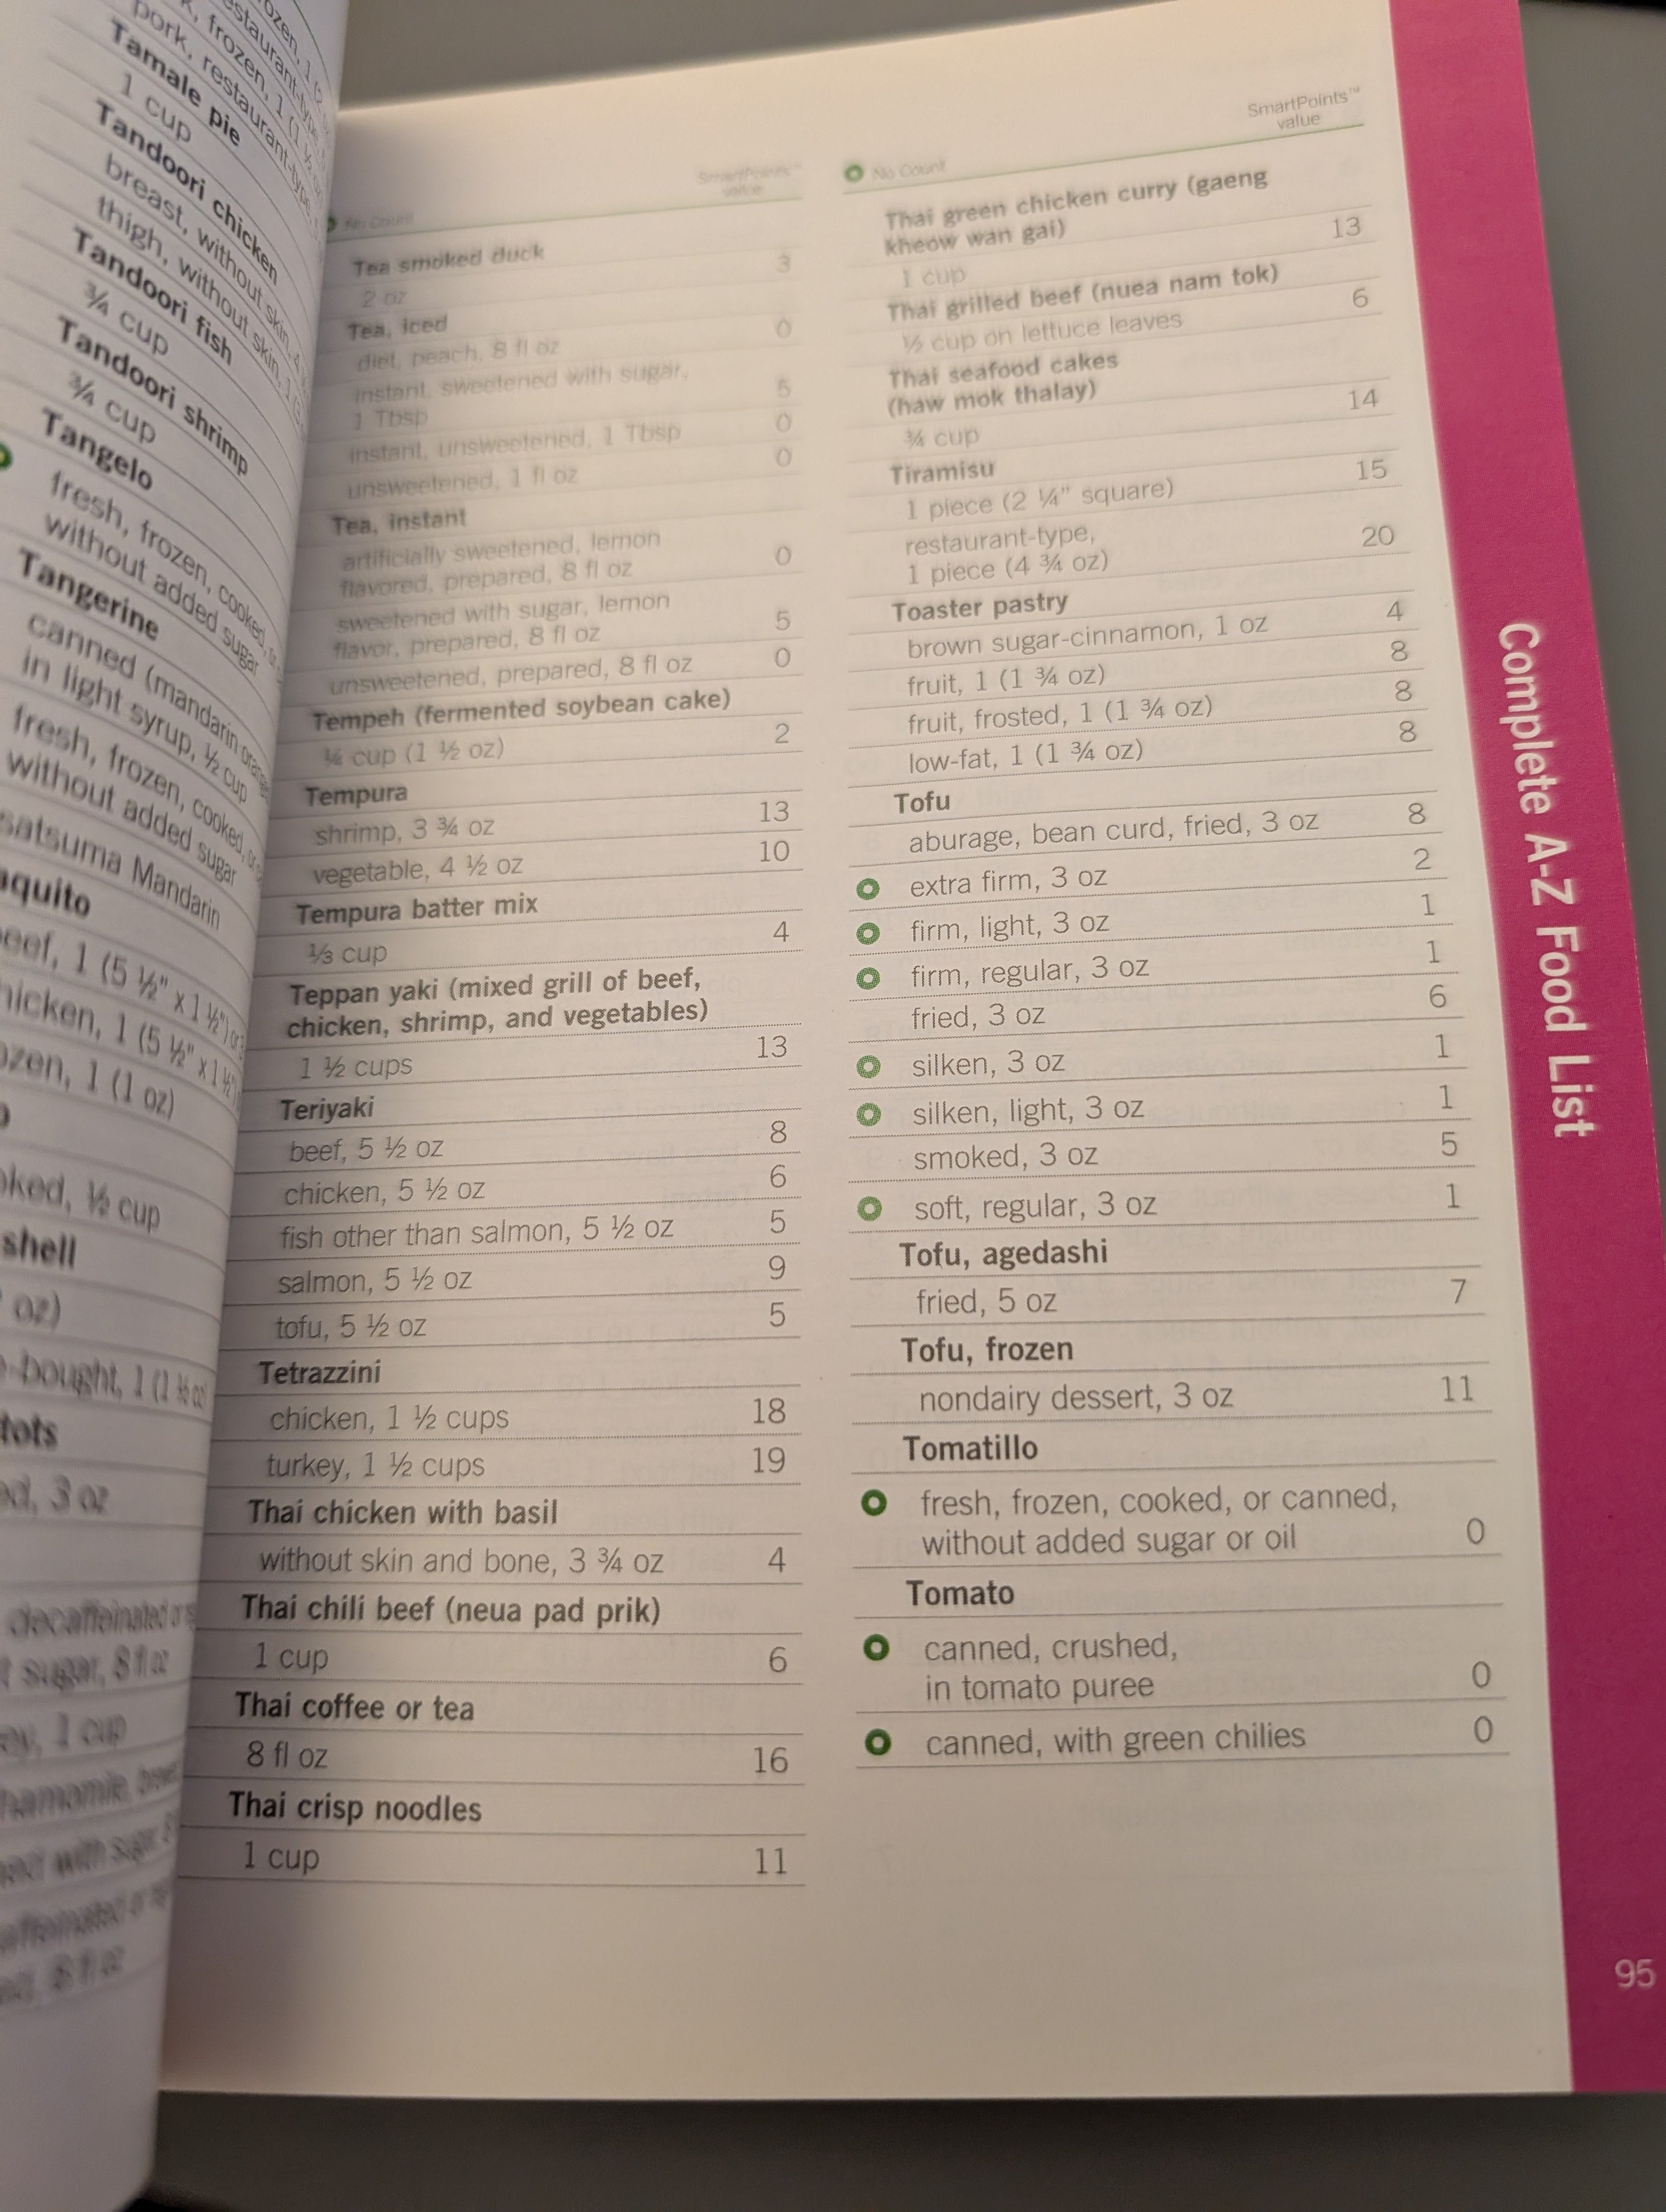 pork, restaurant-type,
Tamale pie
1 cup
Tandoori chicken
breast, without skin,
thigh, without skin,
Tandoori fish
¾ cup
Tandoori shrimp
¾ cup
Tangelo
fresh, frozen, cooked,
without added sugar
Tangerine
canned (mandarin
in light syrup, ½ cup
fresh, frozen, cooked,
without added sugar
satsuma Mandarin
1 (5 ½" x 1 ½")
1 (5 ½" x 1 ½")
1 (1 oz)
½ cup
shell
oz)
3 oz
decaffeinated
sugar, 8 fl oz
1 cup
No Count
SmartPoints™
value
Tea smoked duck
2 oz 3
Tea, iced
diet, peach, 8 fl oz 0
instant, sweetened with sugar,
1 Tbsp 5
instant, unsweetened, 1 Tbsp 0
unsweetened, 1 fl oz 0
Tea, instant
artificially sweetened, lemon
flavored, prepared, 8 fl oz 0
sweetened with sugar, lemon
flavor, prepared, 8 fl oz 5
unsweetened, prepared, 8 fl oz 0
Tempeh (fermented soybean cake)
cup (1 ½ oz) 2
Tempura
shrimp, 3 ¾ oz 13
vegetable, 4 ½ oz 10
Tempura batter mix
⅓ cup 4
Teppan yaki (mixed grill of beef,
chicken, shrimp, and vegetables)
1 ½ cups 13
Teriyaki
beef, 5 ½ oz 8
chicken, 5 ½ oz 6
fish other than salmon, 5 ½ oz 5
salmon, 5 ½ oz 9
tofu, 5 ½ oz 5
Tetrazzini
chicken, 1 ½ cups 18
turkey, 1 ½ cups 19
Thai chicken with basil
without skin and bone, 3 ¾ oz 4
Thai chili beef (neua pad prik)
1 cup 6
Thai coffee or tea
8 fl oz 16
Thai crisp noodles
1 cup 11
No Count
SmartPoints™
value
Thai green chicken curry (gaeng
kheow wan gai)
1 cup 13
Thai grilled beef (nuea nam tok)
½ cup on lettuce leaves 6
Thai seafood cakes
(haw mok thalay)
¾ cup 14
Tiramisu
1 piece (2 ¼" square) 15
restaurant-type,
1 piece (4 ¾ oz) 20
Toaster pastry
brown sugar-cinnamon, 1 oz 4
fruit, 1 (1 ¾ oz) 8
fruit, frosted, 1 (1 ¾ oz) 8
low-fat, 1 (1 ¾ oz) 8
Tofu
aburage, bean curd, fried, 3 oz 8
extra firm, 3 oz 2
firm, light, 3 oz 1
firm, regular, 3 oz 1
fried, 3 oz 6
silken, 3 oz 1
silken, light, 3 oz 1
smoked, 3 oz 5
soft, regular, 3 oz 1
Tofu, agedashi
fried, 5 oz 7
Tofu, frozen
nondairy dessert, 3 oz 11
Tomatillo
fresh, frozen, cooked, or canned,
without added sugar or oil 0
Tomato
canned, crushed,
in tomato puree 0
canned, with green chilies 0
Complete A-Z Food List
95